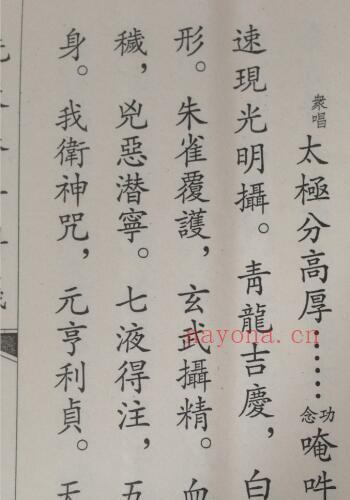 衆唱太極分高厚……功念唵吽
速現光明攝。青龍吉慶，白
形。朱雀覆護，玄武攝精。血
穢，兇惡潛寧。七液得注，五
身。我衛神咒，元亨利貞。天
nayona.cn